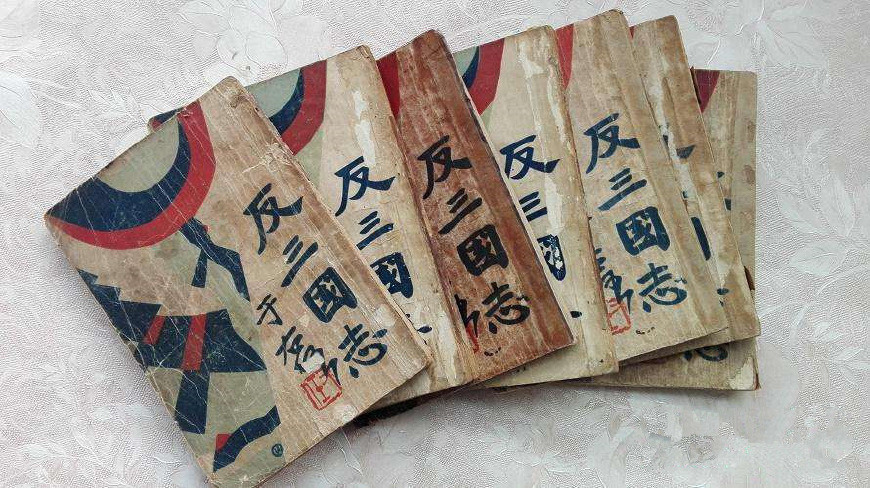 反三國志
于
反三國
反三國志
反三國
反三國志